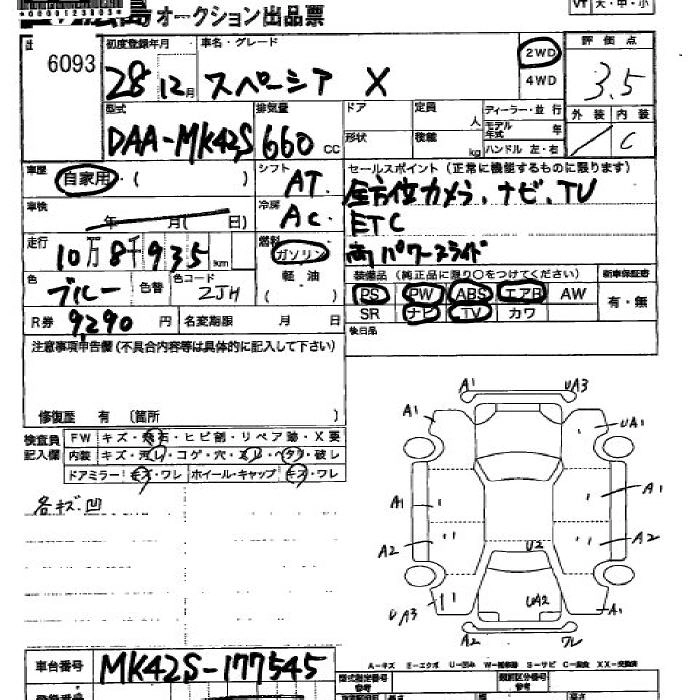 広島オークション出品票
VT 大・中・小
6093
初度登録年月 車名・グレード
28 12月 スペーシア X
2WD
4WD
評価点
3.5
外装 内装
C
型式 排気量 ドア 定員 人 ディーラー・並行
DAA-MK42S 660 CC
形状 積載 kg モデル年式 年
ハンドル 左・右
車歴 自家用・( )
シフト AT
セールスポイント(正常に機能するものに限ります)
全方位カメラ、ナビ、TV
ETC
両パワースライド
車検 年 月( 日)
冷房 AC
走行 10万8千935km
燃料 ガソリン
軽・油
( )
色 ブルー 色替 色コード ZJH
装備品(純正品に限り○をつけてください) 新車保証書
PS PW ABS エアB AW 有・無
SR ナビ TV カワ
R券 9,290円 名変期限 月 日
後日品
注意事項申告欄(不具合内容等は具体的に記入して下さい)
修復歴 有 (箇所 )
検査員記入欄
FW キズ・飛石・ヒビ割・リペア跡・X要
内装 キズ・汚レ・コゲ・穴・スレ・ヘタリ・破レ
ドアミラー キズ・ワレ ホイール・キャップ キズ・ワレ
各キズ.凹
A1 UA3
A1 UA1
A1 A1
A2 A2
U2
UA3 UA2 A1
A2 ワレ
A-キズ E-エクボ U-凹み W-補修跡 S-サビ C-腐食 XX-交換済
車台番号 MK42S-177545
登録番号
型式指定番号 参考
類別区分番号 参考
長さ 幅 高さ